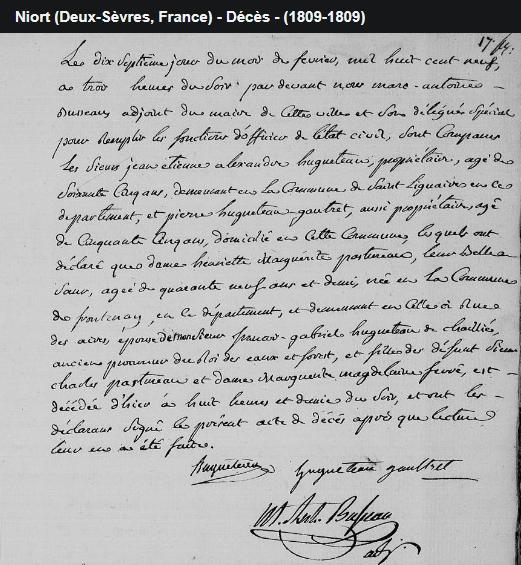 Niort (Deux-Sèvres, France) - Décès - (1809-1809)
17 f.er
Les dix Septieme jour du mois de fevrier, mil huit cent neuf,
a trois heures du Soir pardevant nous marc-antoine
Busseau adjoint du maire de Cette ville et Son délégué Spécial
pour Remplir les fonctions d'officier de l'état civil, Sont Comparus
Les Sieurs jean etienne alexandre hugueteau, propriétaire, agé de
Soixante Cinq ans, demeurant en La Commune de Saint Liguaire en ce
departement, et pierre hugueteau gautret, aussi propriétaire, agé
de Cinquante Cinq ans, domicilié en Cette Commune, lesquels ont
déclaré que dame henriette Marguerite pastureau, leur Belle
Sœur, agée de quarante neuf ans et demi, née en La Commune
de fontenay, en ce département, et demeurant en Celle ci Rue
des aires, épouse de monsieur françois-gabriel hugueteau de chaillié,
ancien procureur du Roi des eaux et forest, et fille des défunt Sieur
charles pastureau et dame Marguerite magdelaine ferré, est
décédée d'hier à huit heures et demie du Soir, et ont les
déclarans Signé le présent acte de décès après que lecture
leur en a été faite.
hugueteau hugueteau gaultret
M. Ant. Busseau
adj.